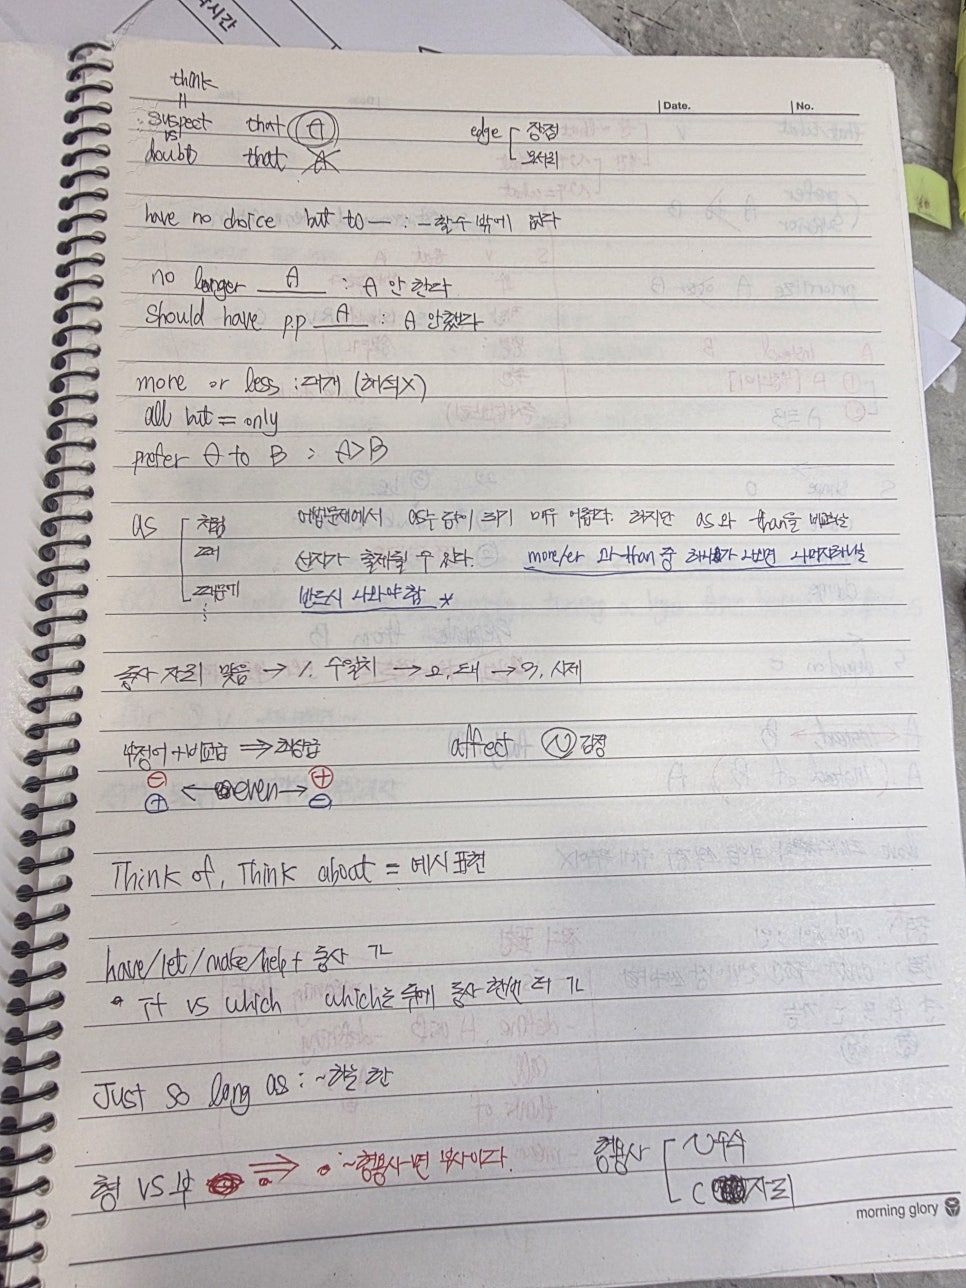 시간
think
=
suspect that A
vs
doubt that A
Date. No.
edge 장점
모서리
have no choice but to — : ~할수 밖에 없다
no longer A : A 안 한다.
should have p.p A : A 안했다
more or less : 대개 (해석X)
all but = only
prefer A to B : A>B
as
처럼
때
때문에
어법문제에서 as는 답이 되기 매우 어렵다. 하지만 as와 than을 비교하는
선지가 출제될 수 있다. more/er 과 than 중 하나가 나오면 나머지하나는
반드시 나와야 함 *
동사 자리 맞음 → 1. 수일치 → 2. 태 → 3. 시제
부정어+비교급 ⇒ 최상급
affect n 감정
- +
+ ← even → -
Think of, Think about = 예시 표현
have/let/make/help + 동사
it vs which which는 뒤에 동사 한번 더
Just so long as : ~하는 한
형 vs 부 ⇒ ~형용사면 부사이다.
형용사
n 수식
C 자리
morning glory